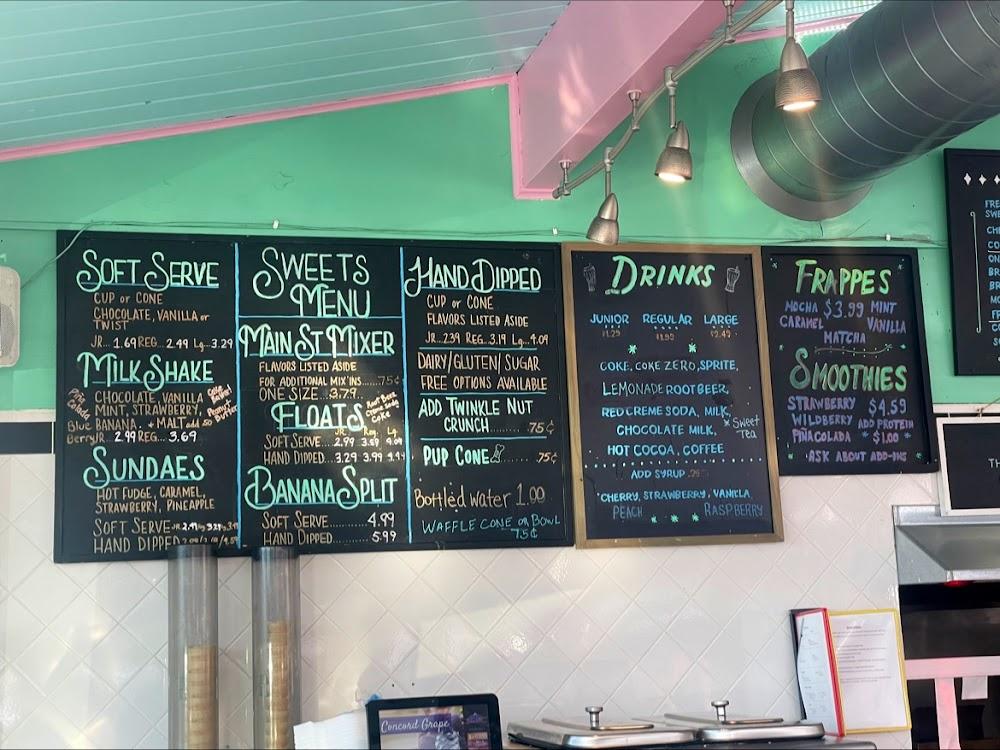 SOFT SERVE
CUP or CONE
CHOCOLATE, VANILLA or
TWIST
JR... 1.69 REG... 2.49 Lg... 3.29
MILK SHAKE
CHOCOLATE, VANILLA
MINT, STRAWBERRY,
BANANA. + MALT add 50
Piña
Colada
Blue
Berry
Cake
Batter!
Peanut
Butter
JR... 2.99 REG... 3.69
SUNDAES
HOT FUDGE, CARAMEL,
STRAWBERRY, PINEAPPLE
SOFT SERVE
HAND DIPPED
SWEETS
MENU
MAIN ST MIXER
FLAVORS LISTED ASIDE
FOR ADDITIONAL MIX'INS......75¢
ONE SIZE...3.79
FLOATS
Root Beer
Coke
JR. Reg. Lg
SOFT SERVE....2.99 3.59 4.09
HAND DIPPED...3.29 3.99
BANANA SPLIT
SOFT SERVE............4.99
HAND DIPPED...........5.99
HAND DIPPED
CUP or CONE
FLAVORS LISTED ASIDE
JR...2.39 REG...3.19 Lg...4.09
DAIRY/GLUTEN/SUGAR
FREE OPTIONS AVAILABLE
ADD TWINKLE NUT
CRUNCH.........75¢
PUP CONE.........75¢
Bottled water 1.00
WAFFLE CONE or BOWL
75¢
DRINKS
JUNIOR REGULAR LARGE
$1.29 $1.89 $2.49
COKE, COKE ZERO, SPRITE,
LEMONADE ROOT BEER,
RED CREME SODA, MILK,
CHOCOLATE MILK,
* Sweet
Tea
HOT COCOA, COFFEE
ADD SYRUP
CHERRY, STRAWBERRY, VANILLA
PEACH RASPBERRY
FRAPPES
MOCHA $3.99 MINT
CARAMEL VANILLA
MATCHA
SMOOTHIES
STRAWBERRY $4.59
WILDBERRY ADD PROTEIN
PIÑA COLADA * $1.00 *
* ASK ABOUT ADD-INS
Concord Grape